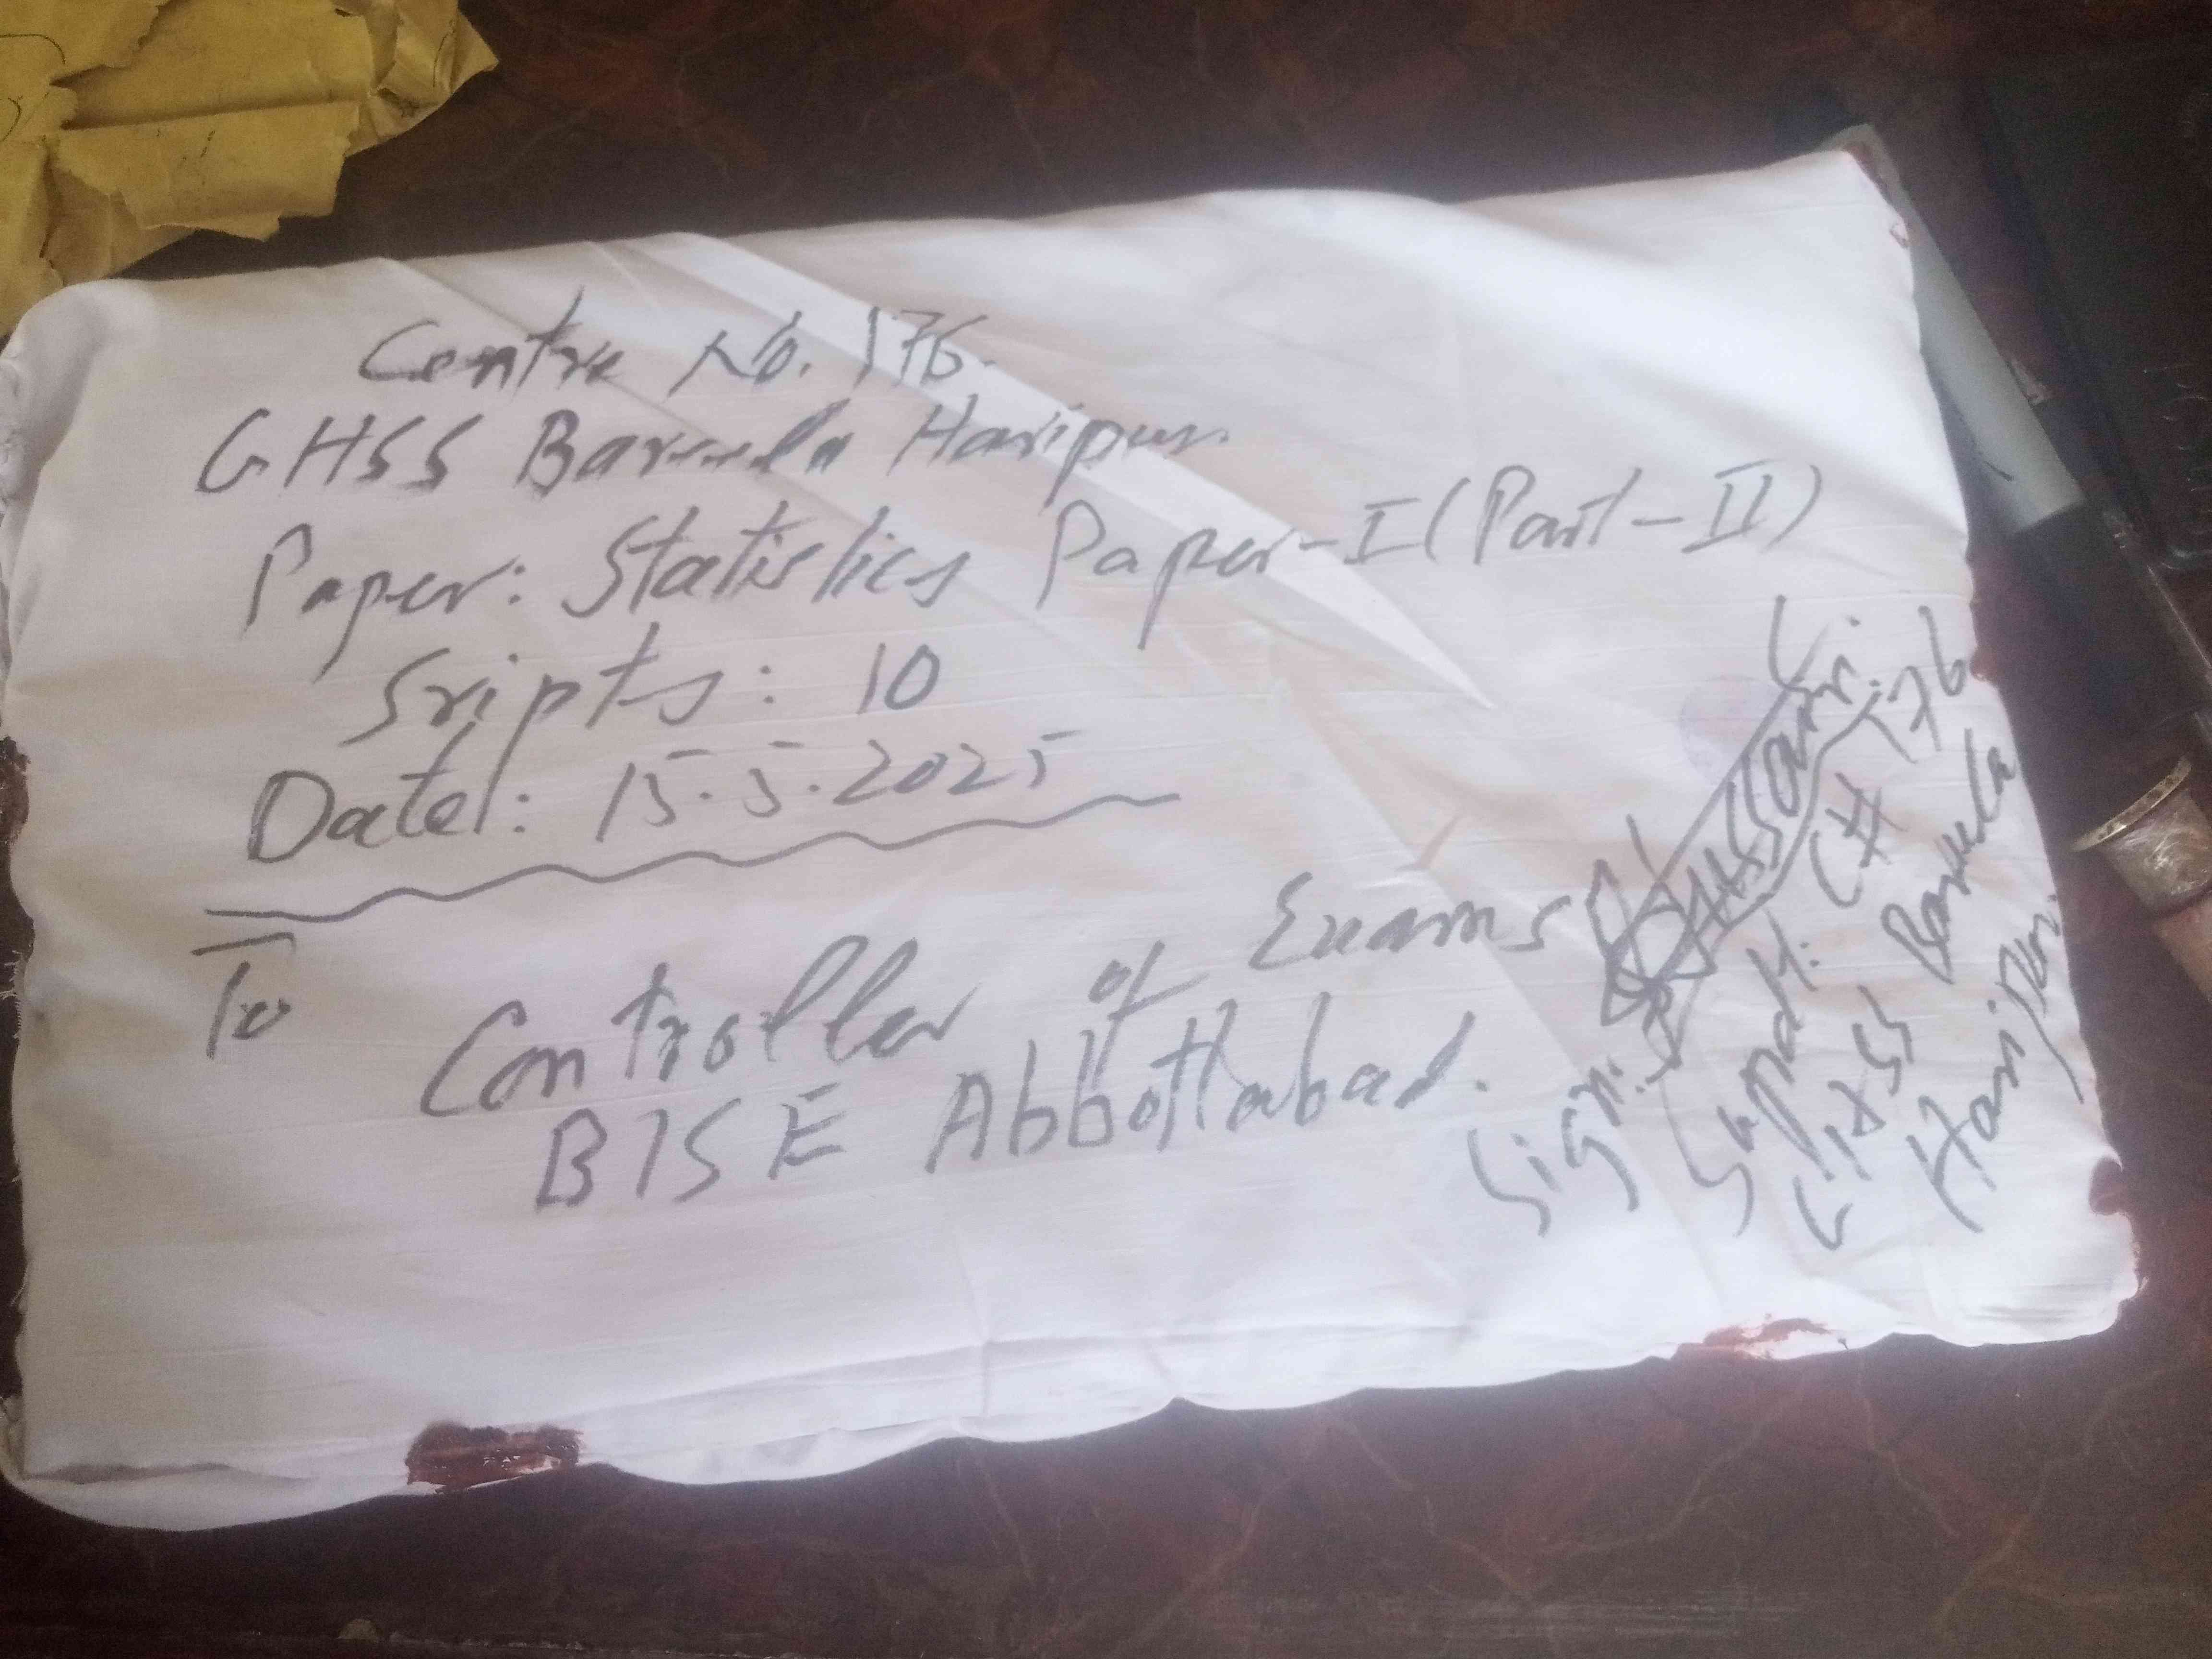 Centre No. 176.
GHSS Bareela Haripur.
Paper: Statistics Paper-I (Part-II)
Sripts: 10
Dated: 15.5.2025
To
Controller of Exams
BISE Abbottabad.
Sign:
Supdt: C# 176
GHSS Bareela
Haripur.